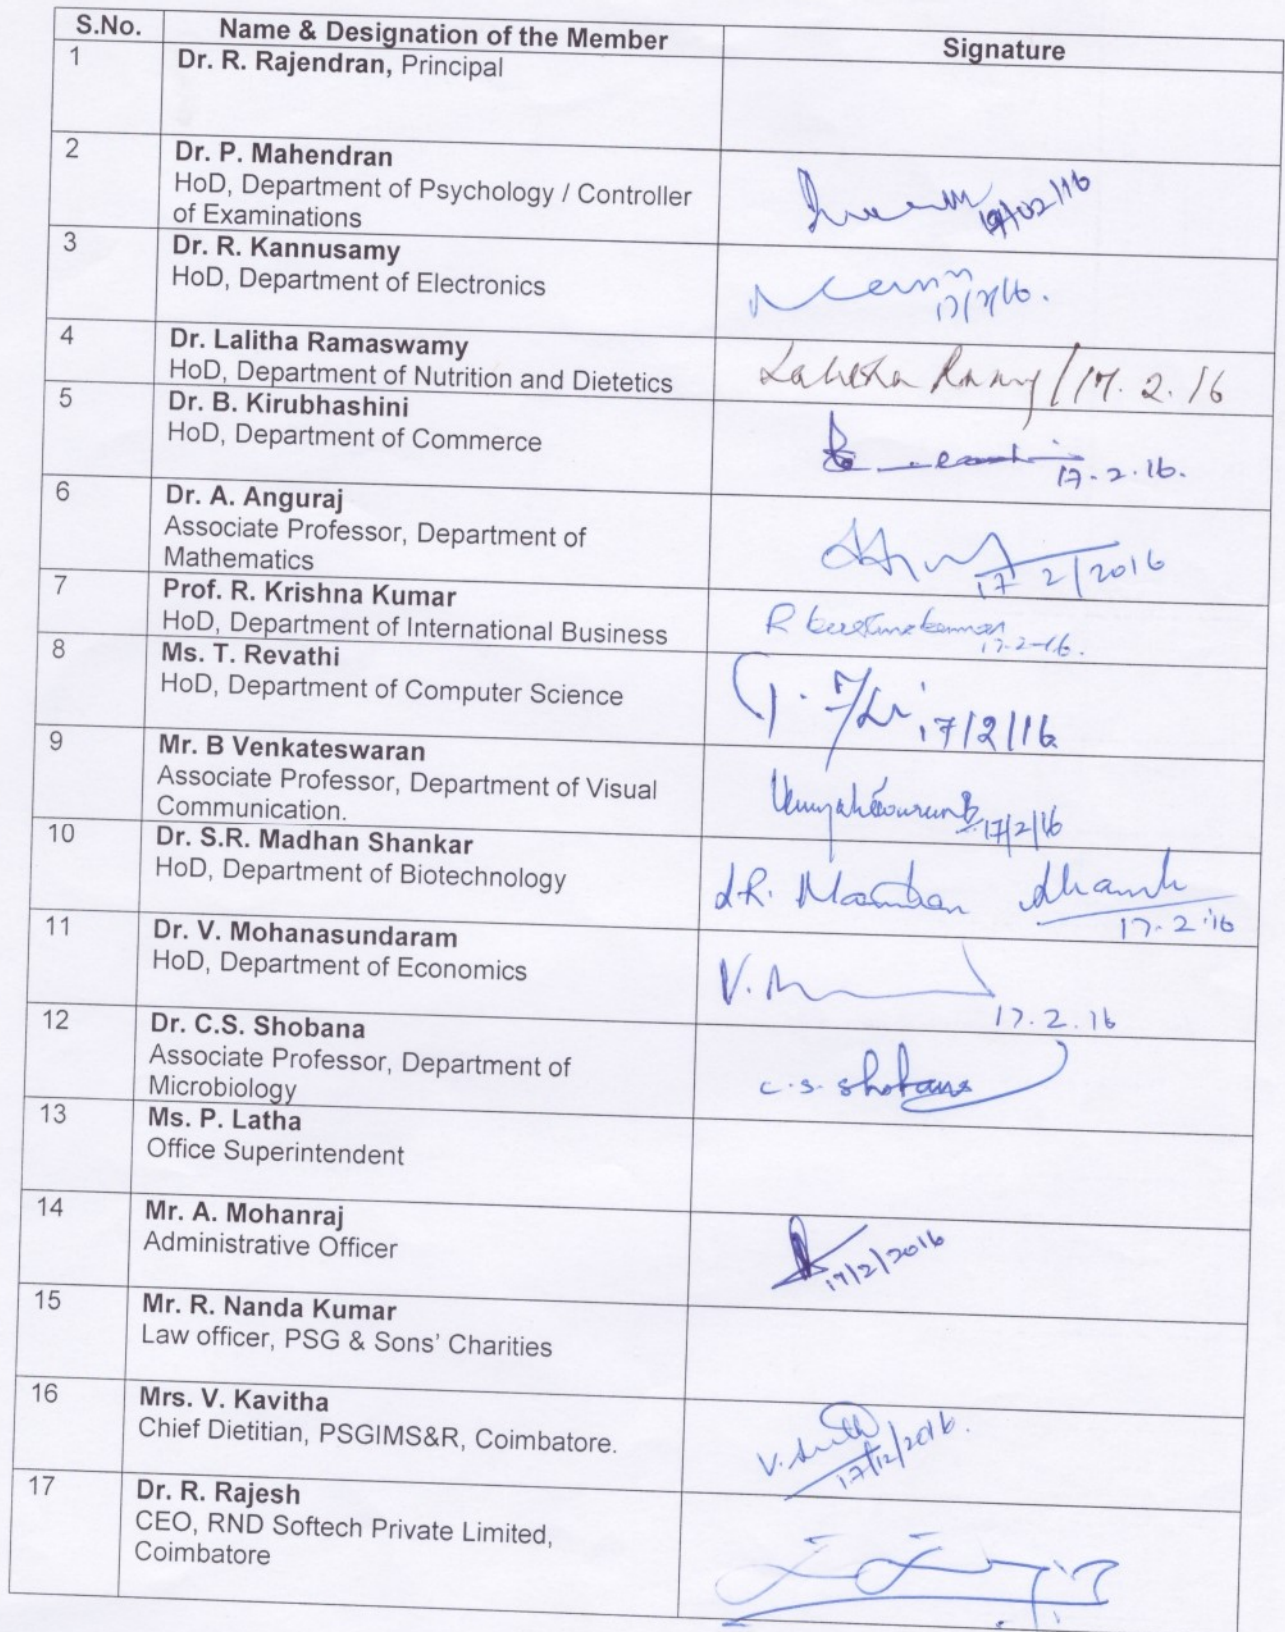 S.No. Name & Designation of the Member Signature
1 Dr. R. Rajendran, Principal
2 Dr. P. Mahendran
HoD, Department of Psychology / Controller
of Examinations
/02/16
3 Dr. R. Kannusamy
HoD, Department of Electronics
17/2/16.
4 Dr. Lalitha Ramaswamy
HoD, Department of Nutrition and Dietetics
Lalitha /17.2.16
5 Dr. B. Kirubhashini
HoD, Department of Commerce
17.2.16.
6 Dr. A. Anguraj
Associate Professor, Department of
Mathematics
17/2/2016
7 Prof. R. Krishna Kumar
HoD, Department of International Business
R Krishnakumar
17-2-16.
8 Ms. T. Revathi
HoD, Department of Computer Science
17/2/16
9 Mr. B Venkateswaran
Associate Professor, Department of Visual
Communication.
17/2/16
10 Dr. S.R. Madhan Shankar
HoD, Department of Biotechnology
S.R. Madhan Shank
17.2.16
11 Dr. V. Mohanasundaram
HoD, Department of Economics
V.
17.2.16
12 Dr. C.S. Shobana
Associate Professor, Department of
Microbiology
C.S. Shobana
13 Ms. P. Latha
Office Superintendent
14 Mr. A. Mohanraj
Administrative Officer
17/2/2016
15 Mr. R. Nanda Kumar
Law officer, PSG & Sons' Charities
16 Mrs. V. Kavitha
Chief Dietitian, PSGIMS&R, Coimbatore.
V.
17/12/2016.
17 Dr. R. Rajesh
CEO, RND Softech Private Limited,
Coimbatore